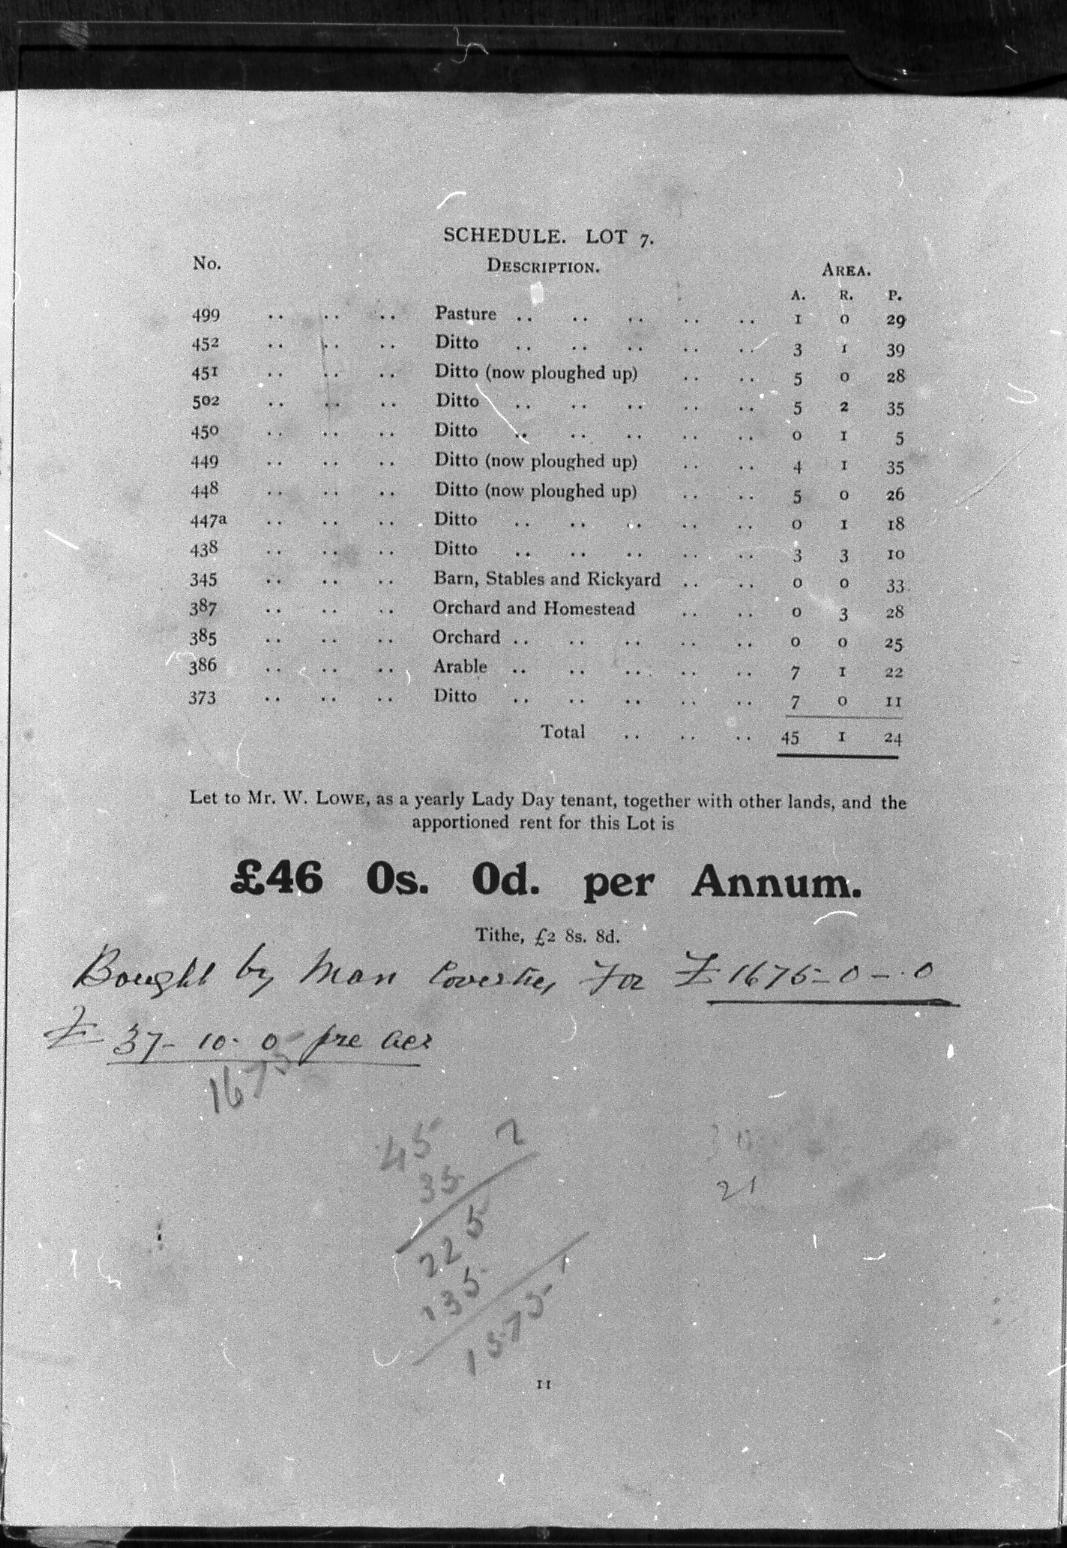 SCHEDULE. LOT 7.
No. DESCRIPTION. AREA.
A. R. P.
499 .. .. .. Pasture .. .. .. .. .. 1 0 29
452 .. .. .. Ditto .. .. .. .. .. 3 1 39
451 .. .. .. Ditto (now ploughed up) .. .. 5 0 28
502 .. .. .. Ditto .. .. .. .. .. 5 2 35
450 .. .. .. Ditto .. .. .. .. .. 0 1 5
449 .. .. .. Ditto (now ploughed up) .. .. 4 1 35
448 .. .. .. Ditto (now ploughed up) .. .. 5 0 26
447a .. .. .. Ditto .. .. .. .. .. 0 1 18
438 .. .. .. Ditto .. .. .. .. .. 3 3 10
345 .. .. .. Barn, Stables and Rickyard .. .. 0 0 33
387 .. .. .. Orchard and Homestead .. .. 0 3 28
385 .. .. .. Orchard .. .. .. .. .. 0 0 25
386 .. .. .. Arable .. .. .. .. .. 7 1 22
373 .. .. .. Ditto .. .. .. .. .. 7 0 11
Total .. .. .. 45 1 24
Let to Mr. W. LOWE, as a yearly Lady Day tenant, together with other lands, and the
apportioned rent for this Lot is
£46 0s. 0d. per Annum.
Tithe, £2 8s. 8d.
Bought by Man for £1675-0-0
£37-10-0 pre acr
1675
45 2
35
225
135
1575
21
11